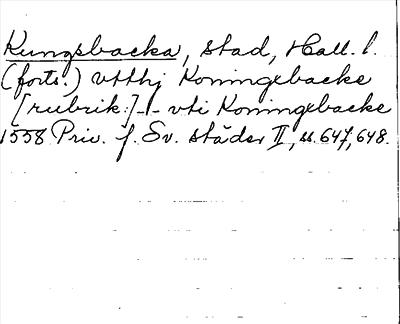 Kungsbacka, stad, Hall. l.
(forts.) vtthj Koningxbacke
[rubrik:] -!- vti Koningxbacke
1558 Priv. f. Sv. städer II, ss. 647, 648.